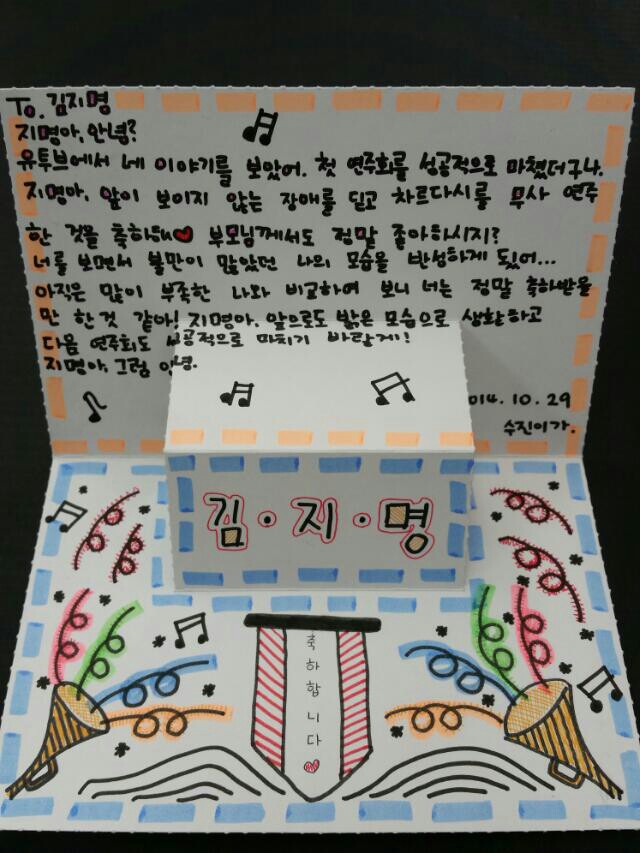 To. 김지명
지명아, 안녕?
유투브에서 네 이야기를 보았어. 첫 연주회를 성공적으로 마쳤더구나.
지명아, 앞이 보이지 않는 장애를 딛고 차르다시를 무사 연주
한 것을 축하해 부모님께서도 정말 좋아하시지?
너를 보면서 불만이 많았던 나의 모습을 반성하게 됬어...
아직은 많이 부족한 나와 비교하여 보니 너는 정말 축하받을
만 한 것 같아! 지명아, 앞으로도 밝은 모습으로 생활하고
다음 연주회도 성공적으로 마치기 바랄게!
지명아, 그럼 안녕.
014. 10. 29
수진이가.
김·지·명
축하합니다